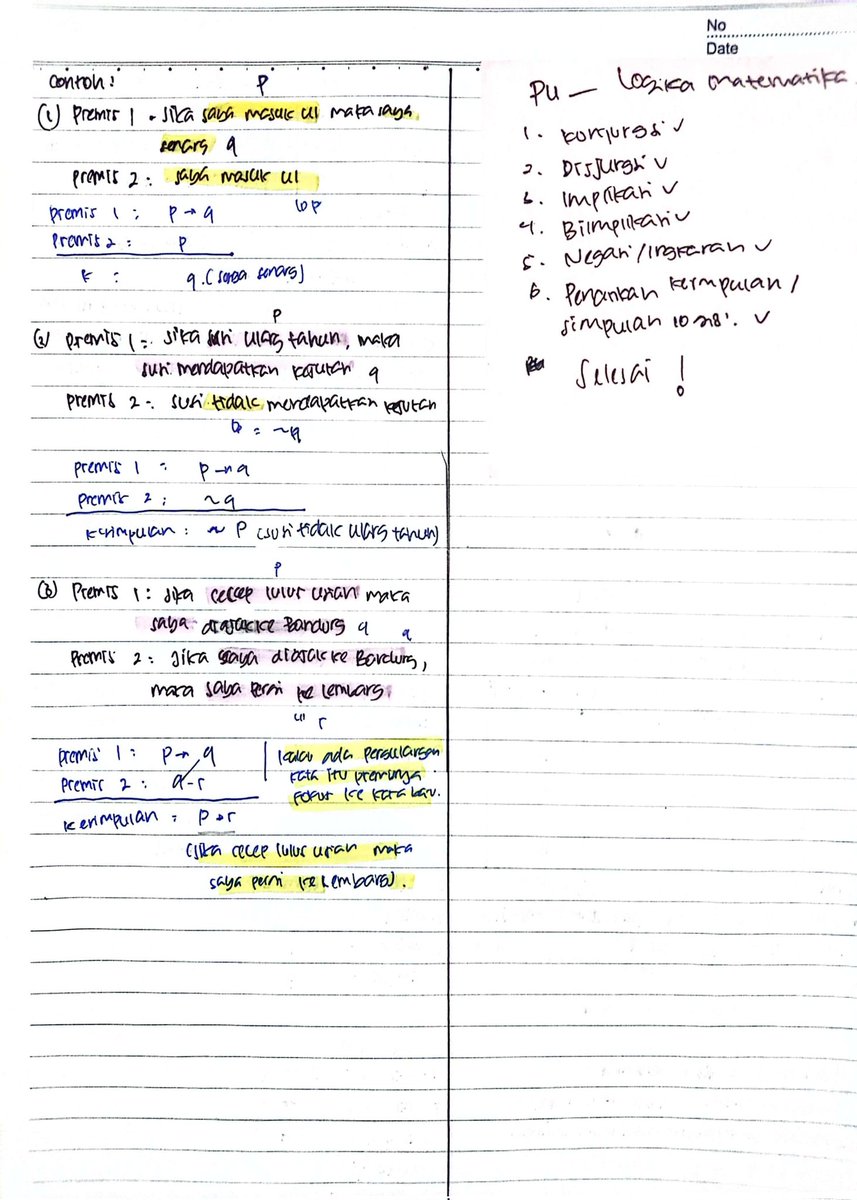 No
Date
Contoh:
P
(1) Premis 1 - Jika saya masuk UI maka saya
senang q
premis 2: saya masuk UI
↳ p
premis 1: p → q
Premis 2: p
K : q. (saya senang)
P
(2) Premis 1 = Jika suri ulang tahun, maka
suri mendapatkan kejutan q
premis 2 = suri tidak mendapatkan kejutan
↳ = ~q
premis 1 = p → q
premis 2: ~q
Kesimpulan: ~ P (suri tidak ulang tahun)
P
(3) Premis 1: Jika cecep lulus ujian maka
saya diajak ke Bandung q
q
Premis 2: Jika saya diajak ke Bandung,
maka saya pergi ke Lembang.
↳ r
premis 1: p → q
Premis 2: q - r
Kesimpulan = P → r
(Jika cecep lulus ujian maka
saya pergi ke Lembang).
kalau ada pengulangan
kata itu premisnya
Fokus ke kata baru.
PU — Logika matematika
1. Konjungsi ✓
2. Disjungsi ✓
3. Implikasi ✓
4. Biimplikasi ✓
5. Negasi/ingkaran ✓
6. Penarikan kesimpulan /
simpulan 10 28'. ✓
Selesai !